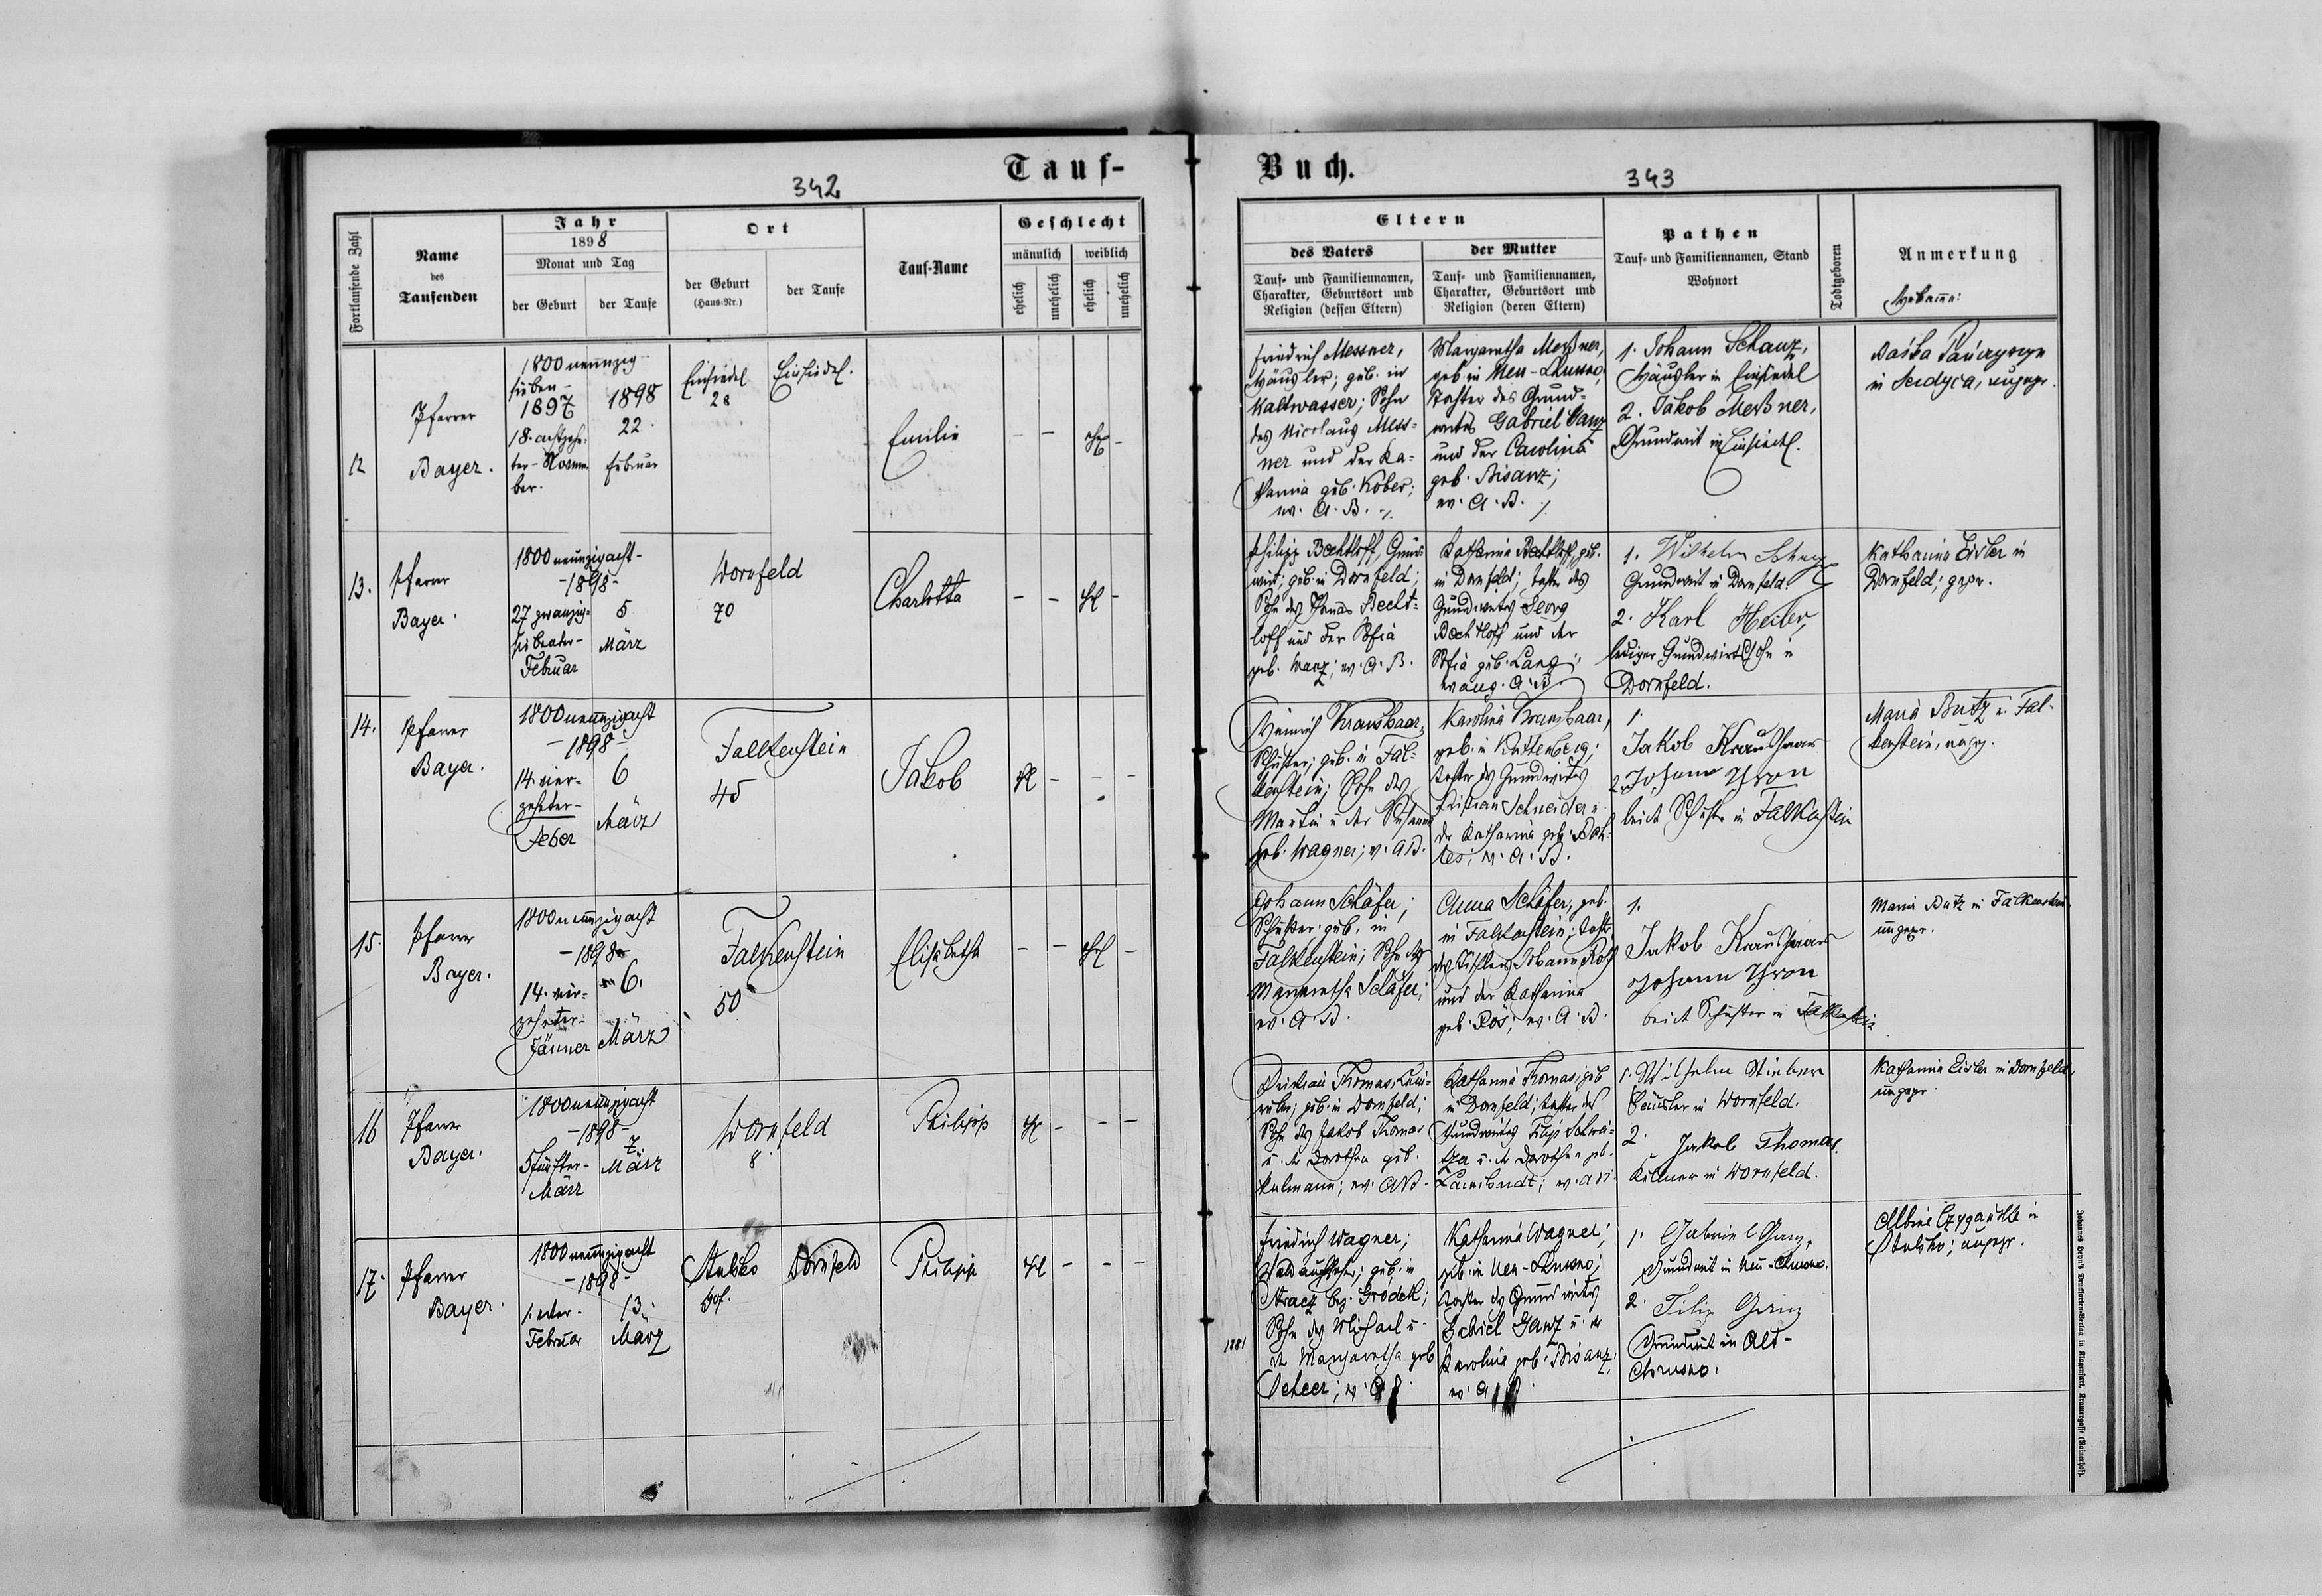 Tauf-
Buch.
342
343
Fortlaufende Zahl
Name
des
Taufenden
Jahr
1898
Monat und Tag
der Geburt
der Taufe
Ort
der Geburt
(Haus-Nr.)
der Taufe
Tauf-Name
Geschlecht
männlich
weiblich
ehelich
unehelich
ehelich
unehelich
Eltern
des Vaters
Tauf- und Familiennamen,
Charakter, Geburtsort und
Religion (dessen Eltern)
der Mutter
Tauf- und Familiennamen,
Charakter, Geburtsort und
Religion (deren Eltern)
Pathen
Tauf- und Familiennamen, Stand
Wohnort
Todtgeboren
Anmerkung
12
Pfarrer
Bayer.
1800 neunzig
sieben-
1897
18. achtzehn-
ter- Novem-
ber.
1898
22.
Februar
Einsiedel
28
Einsiedel.
Emilie
- -
-
Friedrich Messner,
Häusler; geb. in
Kaltwasser; Sohn
des Nicolaus Mess-
ner und der Ka-
tharina geb. Kober;
ev. A. B.
Margaretha Meßner,
geb. in Neu-Chrusno,
Tochter des Grund-
wirtes Gabriel Ganz
und der Carolina
geb. Bisanz;
ev. A. B.
1. Johann Schanz,
Häusler in Einsiedel
2. Jakob Meßner,
Grundwirt in Einsiedel.
Baśka
in Serdyca, ungepr.
13.
Pfarrer
Bayer.
1800 neunzigacht-
-1898-
27 zwanzig-
siebenter-
Februar
5
März
Dornfeld
70
Charlotta
- -
-
Philipp Bechtloff, Grund-
wirt; geb. in Dornfeld;
Sohn des Thomas Becht-
loff und der Sofia
geb. Manz; ev. A. B.
Katharina Bechtloff, geb.
in Dornfeld; Tochter des
Grundwirtes Georg
Bechtloff und der
Sofia geb. Lang;
evang. A. B
1. Wilhelm
Grundwirt in Dornfeld.
2. Karl
lediger Grundwirtssohn in
Dornfeld.
Katharina Eisler in
Dornfeld; gepr.
14.
Pfarrer
Bayer.
1800 neunzigacht
-1898-
14. vier-
zehnter-
Feber
6
März
Falkenstein
45
Jakob
- - -
Heinrich Kraushaar,
Schuster; geb. in Fal-
kenstein; Sohn des
Martin u. der Susanna
geb. Wagner; ev. A. B.
Karolina Kraushaar,
geb. in Kuttenberg;
Tochter des Grundwirtes
Kristian Schneider u.
der Katharina geb.
ev. A. B.
1.
Jakob Kraushaar
2. Johann Thron
beide Schuster in Falkenstein
Maria Butz in Fal-
kenstein, ungepr.
15.
Pfarrer
Bayer.
1800 neunzigacht
-1898-
14. vier-
zehnter-
Jänner
6.
März
Falkenstein
50
Elisabetha
- -
-
Johann Schäfer;
Schuster geb. in
Falkenstein; Sohn der
Margaretha Schäfer;
ev. A. B.
Anna Schäfer, geb.
in Falkenstein; Tochter
des Tischlers Johann
und der Katharina
geb. Rös; ev. A. B.
1.
Jakob Kraushaar
Johann Thron
beide Schuster in Falkenstein
Maria Butz in Falkenstein,
ungepr.
16
Pfarrer
Bayer.
1800 neunzigacht
-1898-
5 fünfter-
März
7
März
Dornfeld
8
Philipp
- - -
Christian Thomas,
geb. in Dornfeld;
Sohn des Jakob Thomas
u. der Dorothea geb.
Kulmann; ev. A. B.
Katharina Thomas; geb.
in Dornfeld; Tochter des
Grundwirtes Filip
u. der Dorothea geb.
ev. A. B.
1. Wilhelm
Häusler in Dornfeld.
2. Jakob Thomas
in Dornfeld.
Katharina Eisler in Dornfeld,
ungepr.
17.
Pfarrer
Bayer.
1800 neunzigacht
-1898-
1. erster-
Februar
13.
März
Stulsko
Hof.
Dornfeld
Philipp
- - -
Friedrich Wagner;
Waldaufseher; geb. in
bez. Grodek;
Sohn des Michael u.
der Margaretha geb.
ev. A. B.
Katharina Wagner;
geb. in Neu-Chrusno;
Tochter des Grundwirtes
Gabriel Ganz u. der
Karolina geb. Bisanz,
ev. A. B.
1. Gabriel Ganz,
Grundwirt in Neu-Chrusno.
2. Filip Ganz
Grundwirt in Alt-
Chrusno.
Albine
Stulsko; ungepr.
1881